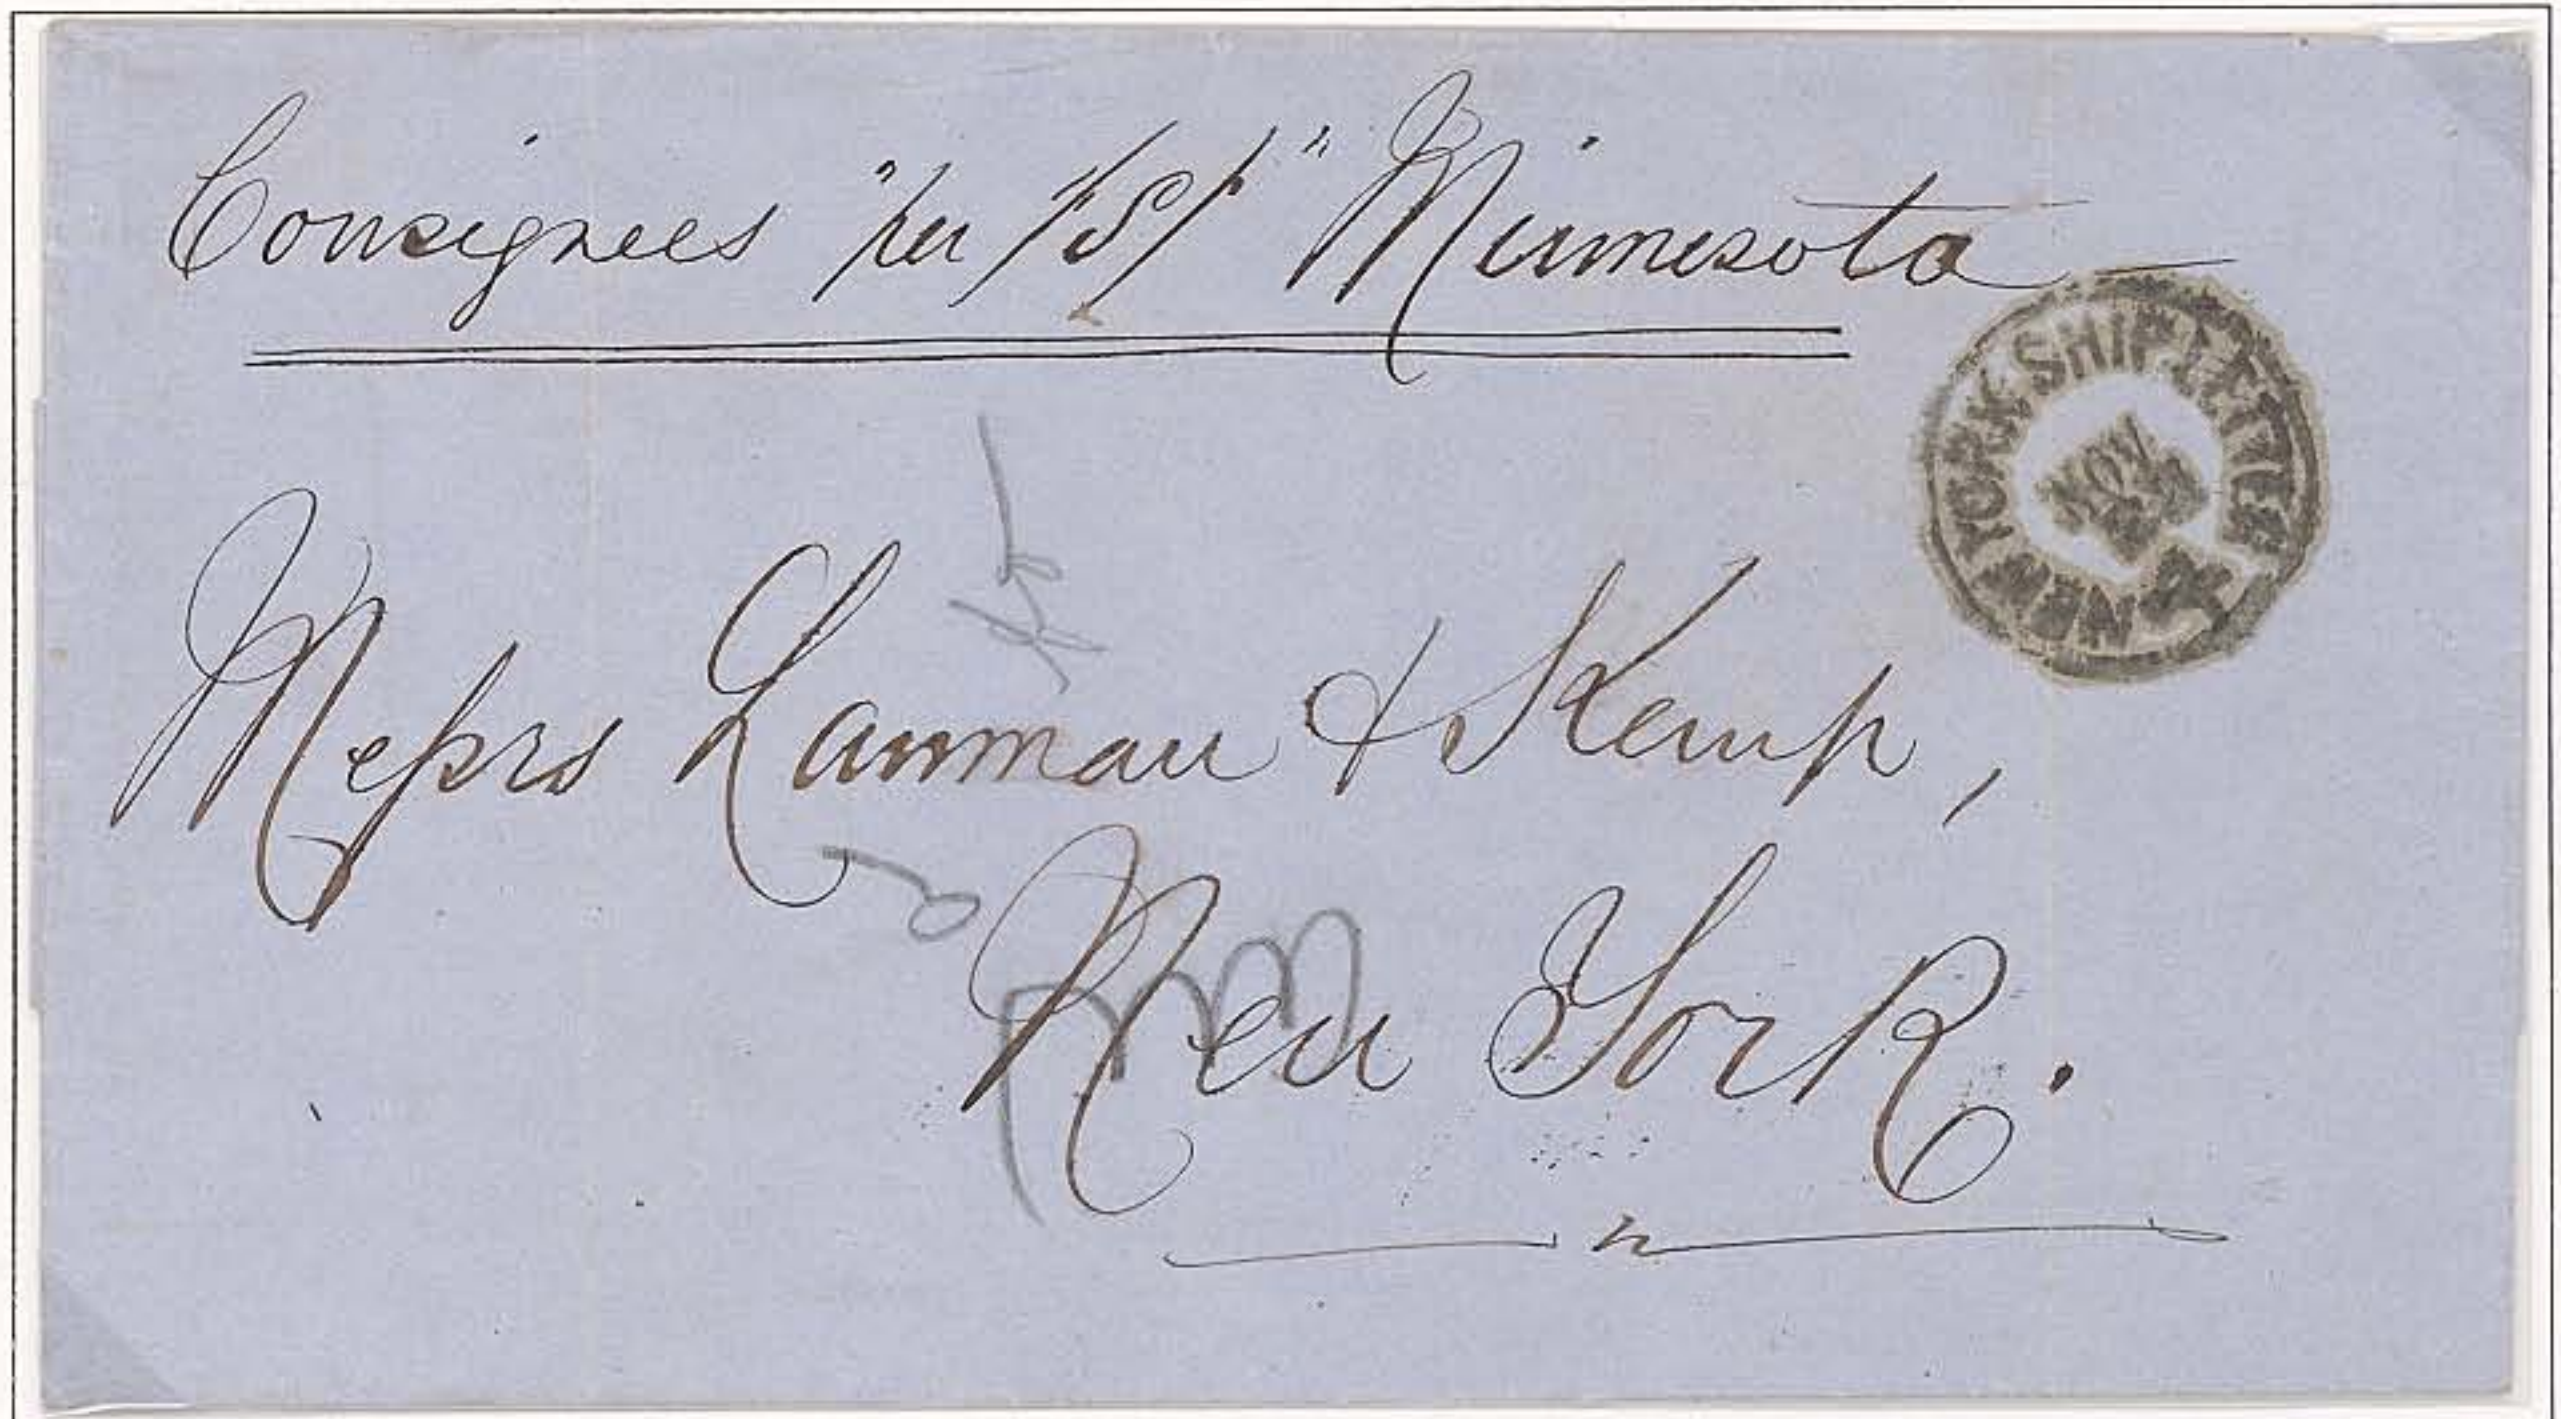 Consignees "per /S/ "Minnesota
NEW YORK SHIP LETTER
NOV
Messrs Lanman & Kemp,
New York.